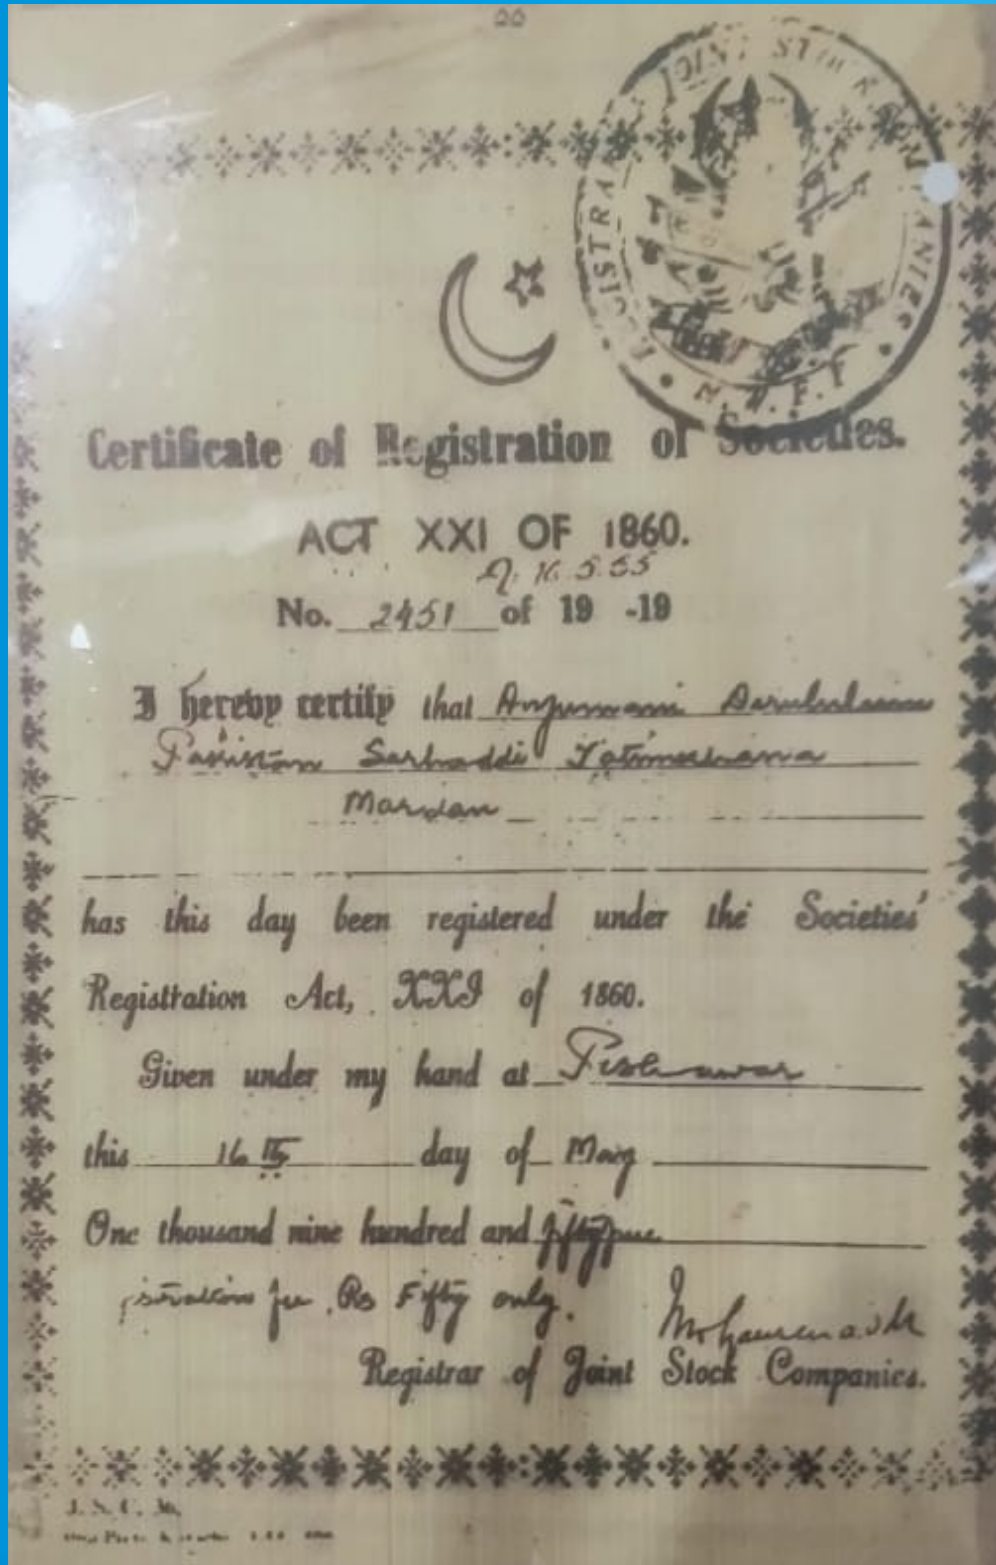 JOINT STOCK
N.W.F.P
Certificate of Registration of Societies.
ACT XXI OF 1860.
16.5.55
No. 2451 of 19 -19
I hereby certify that Anjumani Darululum
Pakistan Sarhaddi Yatimkhana
Mardan
has this day been registered under the Societies'
Registration Act, XXI of 1860.
Given under my hand at Peshawar
this 16th day of May
One thousand nine hundred and fifty five
fee Rs Fifty only.
Registrar of Joint Stock Companies.
J. S. C.